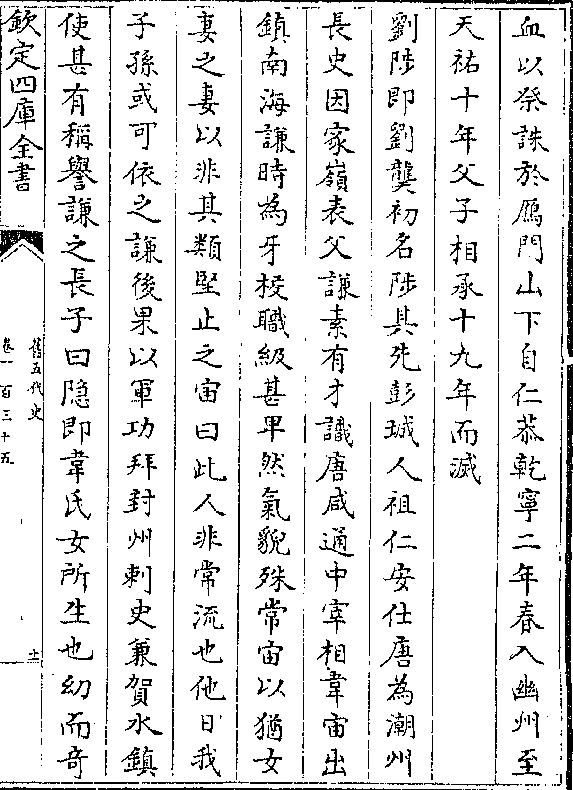 血以祭誅於鴈門山下自仁恭乾寧二年春入幽州至
天祐十年父子相承十九年而滅
劉陟即劉龑初名陟其先彭城人祖仁安仕唐為潮州
長史因家嶺表父謙素有才識唐咸通中宰相韋宙出
鎮南海謙時為牙校職級甚卑然氣貌殊常宙以猶女
妻之妻以非其類堅止之宙曰此人非常流也他日我
子孫或可依之謙後果以軍功拜封州刺史兼賀水鎮
使甚有稱譽謙之長子曰隐即韋氏女所生也幼而竒
欽定四庫全書
舊五代史
卷一百三十五
十二